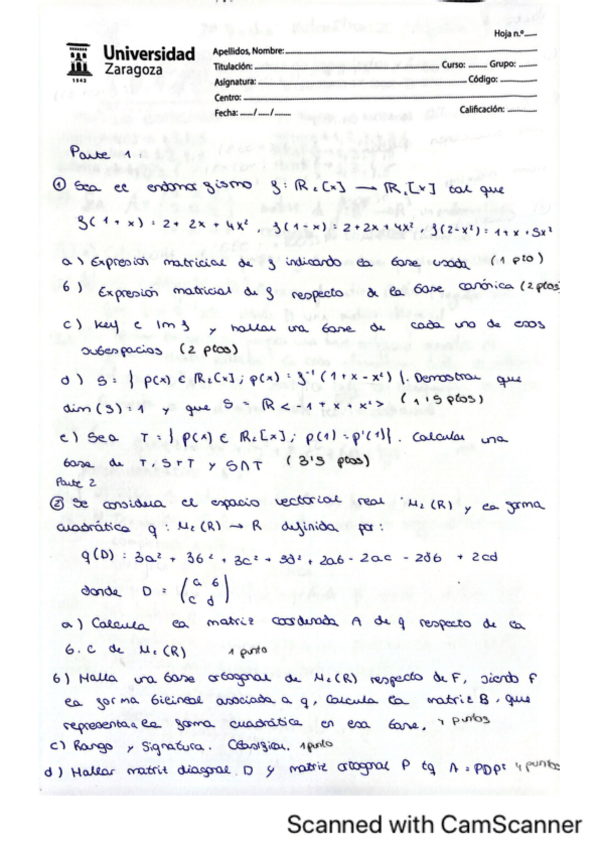 Hoja n.º
Universidad
Zaragoza
1542
Apellidos, Nombre:
Titulación: Curso: Grupo:
Asignatura: Código:
Centro:
Fecha: / / Calificación:
Parte 1:
① Sea el endomorfismo f: ℝ₂[x] → ℝ₂[x] tal que
f(1+x) = 2+2x+4x², f(1-x) = 2+2x+4x², f(2-x²) = 1+x+5x²
a) Expresión matricial de f indicando la base usada (1 pto)
b) Expresión matricial de f respecto de la base canónica (2 ptos
c) Ker f e Im f y hallar una base de cada uno de esos
subespacios (2 ptos)
d) S = { p(x) ∈ ℝ₂[x]; p(x) = f⁻¹(1+x-x²) }. Demostrar que
dim(S) = 1 y que S = ℝ<-1+x+x²> (1'5 ptos)
e) Sea T = { p(x) ∈ ℝ₂[x]; p(1) = p'(1) }. Calcular una
base de T, S+T y S∩T (3'5 ptos)
Parte 2
② Se considera el espacio vectorial real M₂(R) y la forma
cuadrática q: M₂(R) → R definida por:
q(D) = 3a² + 3b² + 3c² + 3d² + 2ab - 2ac - 2db + 2cd
donde D = (a b
c d)
a) Calcula la matriz coordenada A de q respecto de la
b.c de M₂(R) 1 punto
b) Halla una base ortogonal de M₂(R) respecto de F, siendo F
la forma bilineal asociada a q, Calcula la matriz B, que
representa a la forma cuadrática en esa base. 4 puntos
c) Rango y Signatura. 1 punto
d) Hallar matriz diagonal D y matriz ortogonal P tq A = PDPᵗ 4 puntos
Scanned with CamScanner